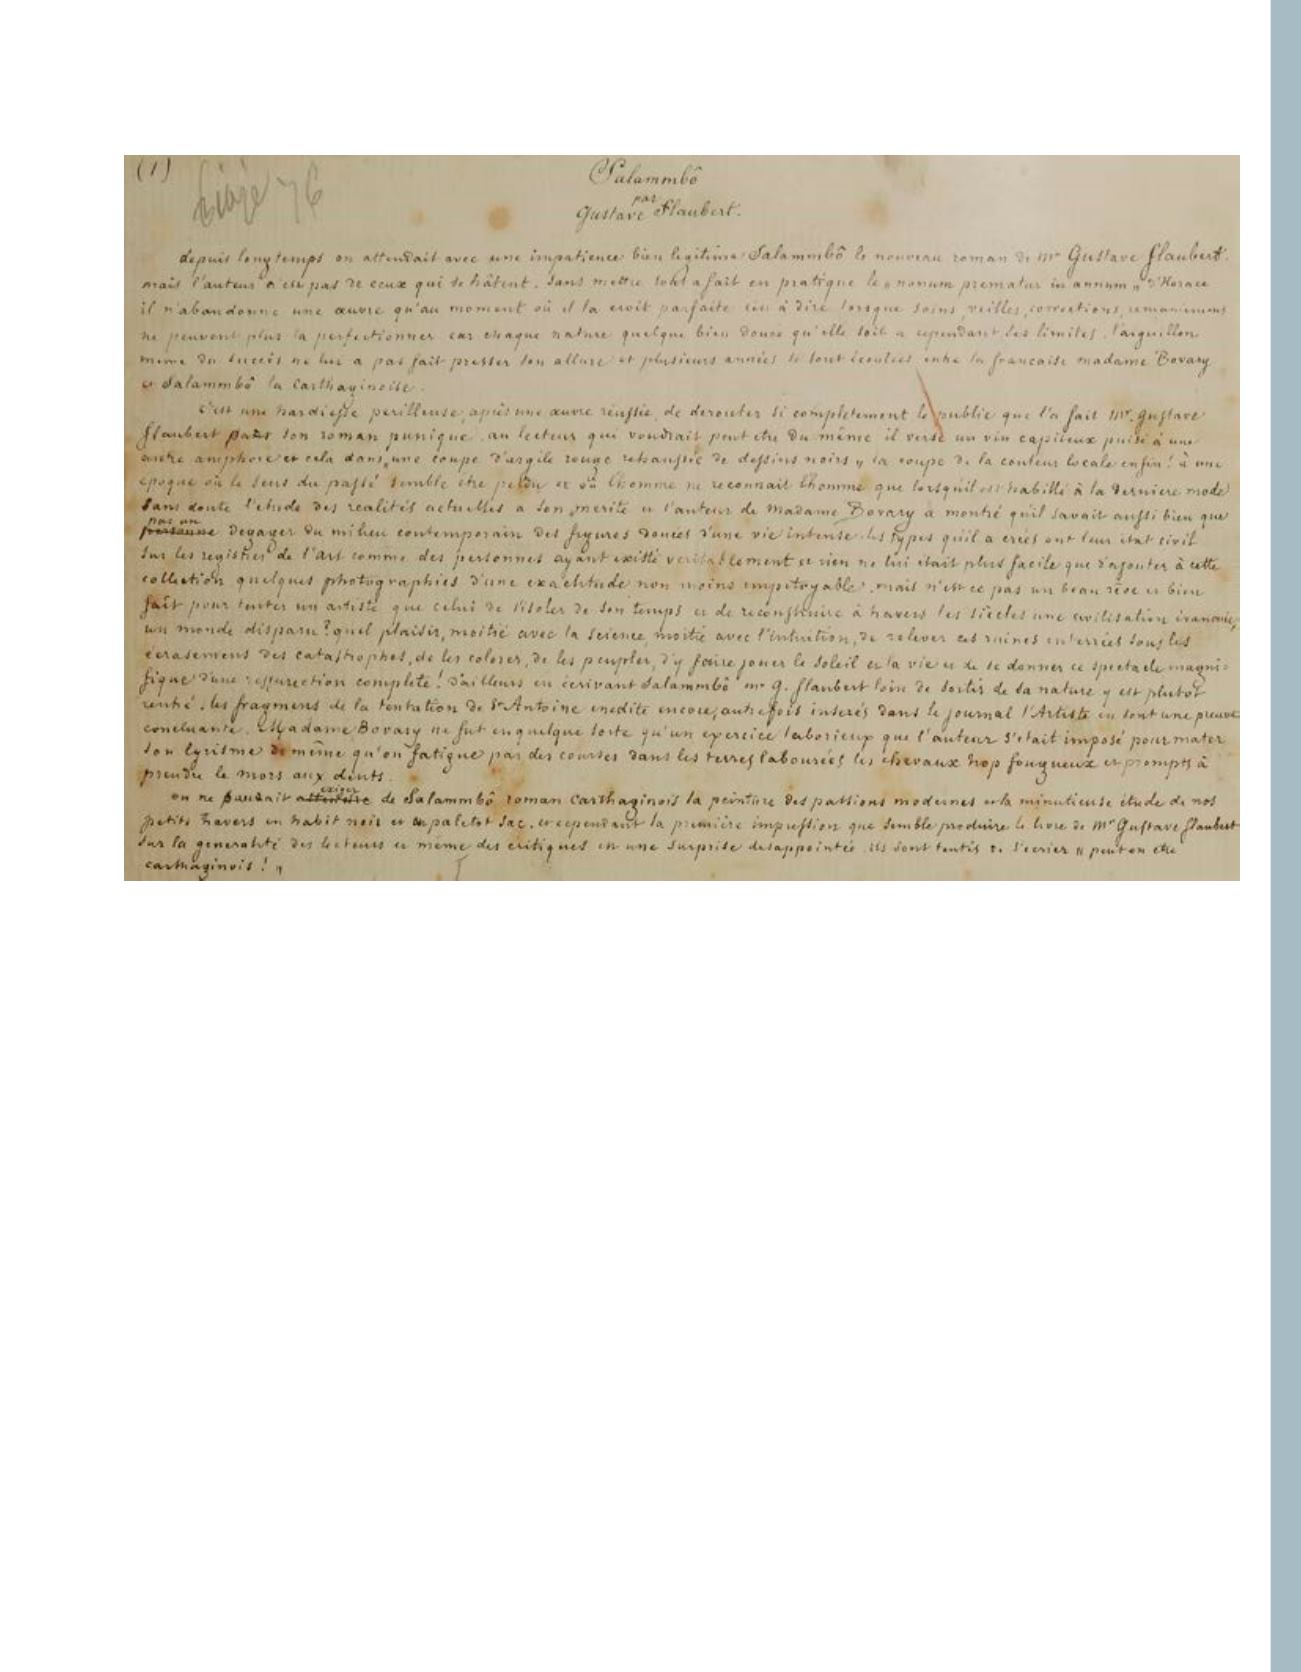 (1)
Salammbô
par
Gustave Flaubert.
depuis longtemps on attendait avec une impatience bien legitime Salammbô le nouveau roman de Mr Gustave Flaubert.
mais l'auteur n'est pas de ceux qui se hâtent. Sans mettre tout a fait en pratique le "nonum prematur in annum" d'Horace
il n'abandonne une œuvre qu'au moment où il la croit parfaite à dire lorsque soins, veilles, corrections, remaniemens
ne peuvent plus la perfectionner car chaque nature quelque bien douée qu'elle soit a cependant ses limites. l'aiguillon
même du succès ne lui a pas fait presser son allure et plusieurs années se sont écoulées entre la francaise madame Bovary
et Salammbô la Carthaginoise.
c'est une hardiesse perilleuse, après une œuvre réussie, de derouter si completement le public que l'a fait Mr. Gustave
Flaubert par son roman punique. au lecteur qui voudrait peut etre du même il verse un vin capiteux puisé à une
autre amphore et cela dans "une coupe d'argile rouge rehaussée de dessins noirs" la coupe de la couleur locale enfin! à une
epoque où le sens du passé semble etre perdu et où l'homme ne reconnait l'homme que lorsqu'il est habillé à la derniere mode
sans doute l'etude des realités actuelles a son merite et l'auteur de Madame Bovary à montré qu'il savait aussi bien que
pas un
personne degager du milieu contemporain des figures douées d'une vie intense. les types qu'il a créés ont leur état civil
sur les registres de l'art comme des personnes ayant existé veritablement et rien ne lui était plus facile que d'ajouter à cette
collection quelques photographies d'une exactitude non moins impitoyable. mais n'est ce pas un beau rêve et bien
fait pour tenter un artiste que celui de s'isoler de son temps et de reconstruire à travers les siècles une civilisation evanouie,
un monde disparu? quel plaisir, moitié avec la science, moitié avec l'intuition, de relever ces ruines enterrées sous les
ecrasemens des catastrophes, de les colorer, de les peupler, d'y faire jouer le soleil et la vie et de se donner ce spectacle magni-
fique d'une ressurection complète! d'ailleurs en écrivant Salammbô mr G. Flaubert loin de sortir de sa nature y est plutot
rentré. les fragmens de la tentation de St Antoine inedite encore, autrefois inserés dans le journal l'Artiste en sont une preuve
concluante. Madame Bovary ne fut en quelque sorte qu'un exercice laborieux que l'auteur s'etait imposé pour mater
son lyrisme de même qu'on fatigue par des courses dans les terres labourées les chevaux trop fougueux et prompts à
prendre le mors aux dents.
exiger
on ne pouvait attendre de Salammbô roman Carthaginois la peinture des passions modernes et la minutieuse étude de nos
petits travers en habit noir et en paletot sac. et cependant la première impression que semble produire le livre de Mr Gustave Flaubert
sur la generalité des lecteurs et même des critiques est une surprise desappointée. ils sont tentés de s'ecrier "peut on etre
carthaginois!"